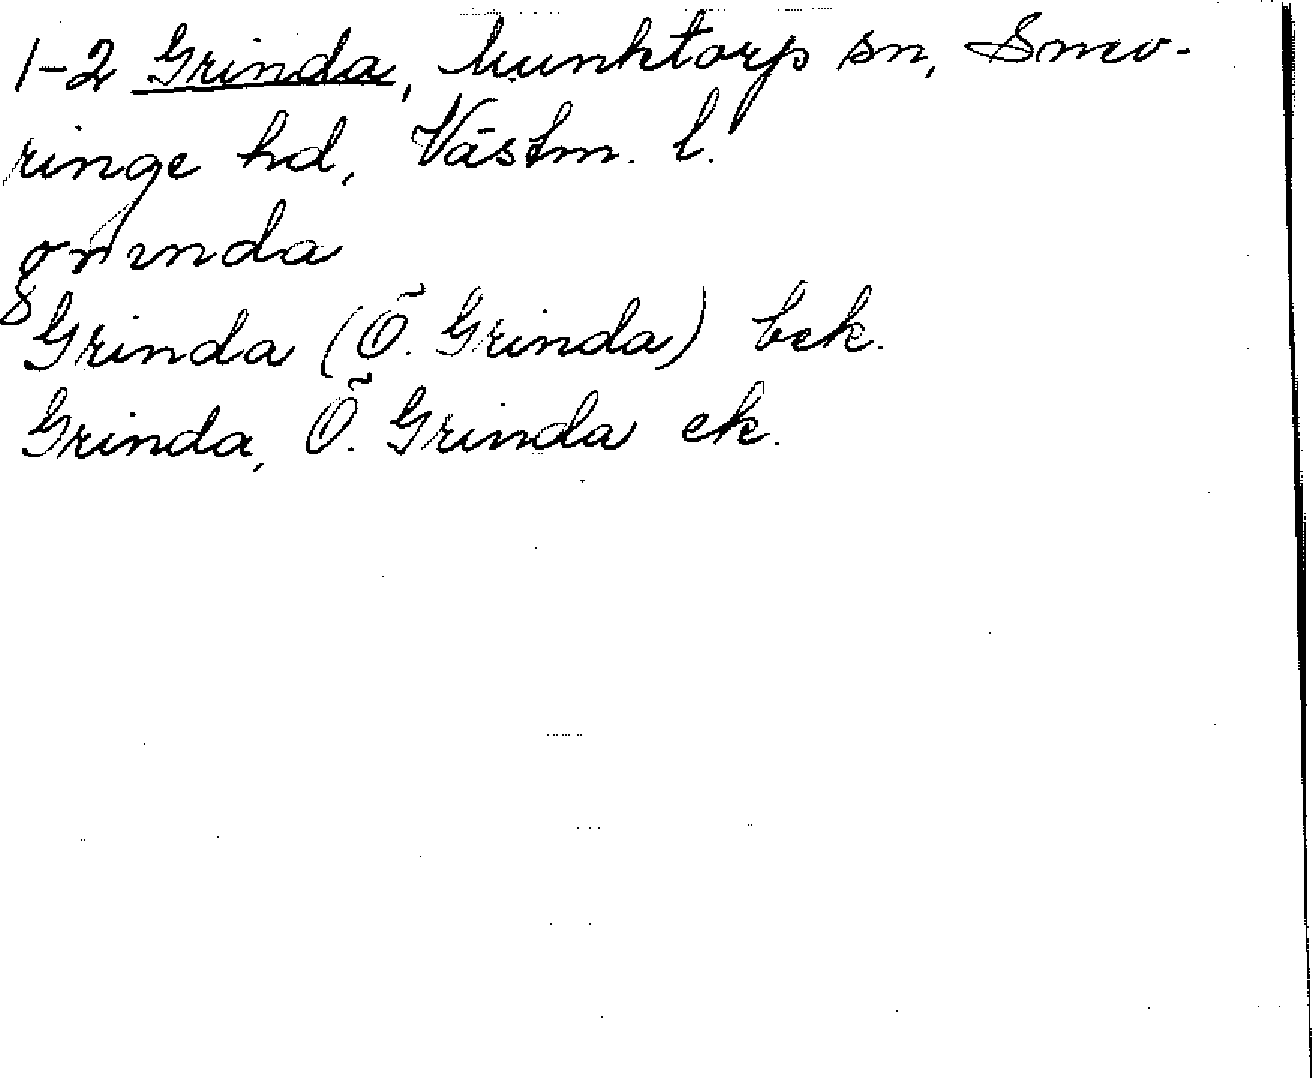 1-2 Grinda, Munktorp sn, Snev-
ringe hd, Västm. l.
grinda
Grinda (Ö. Grinda) bek.
Grinda, Ö. Grinda ek.